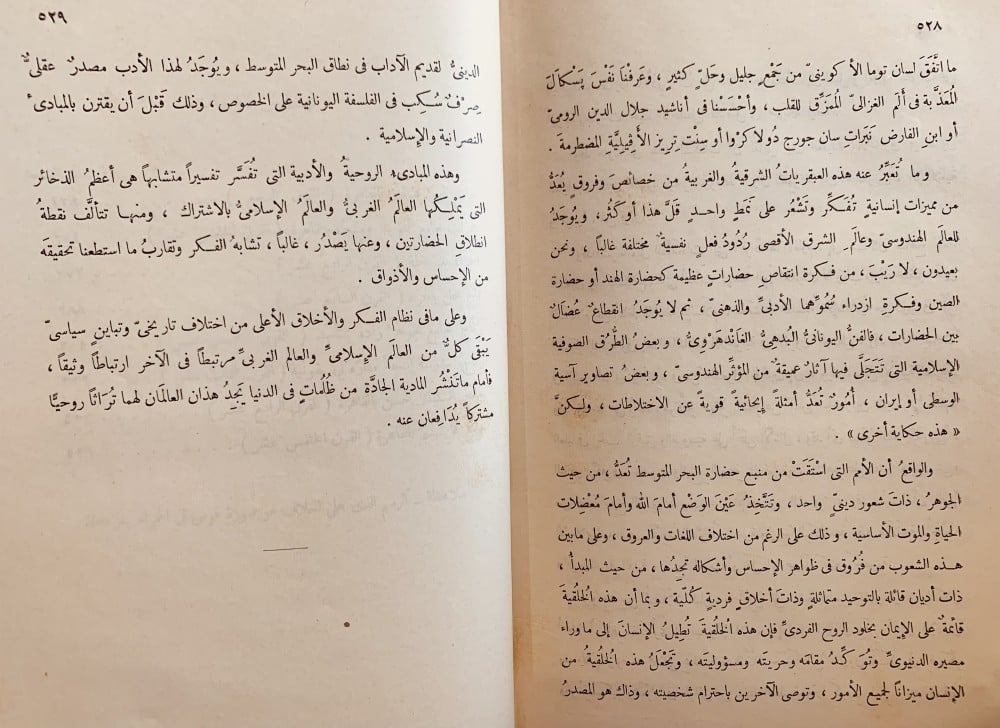 ٥٢٨
ما اتَّفَقَ لسان توما الأكوينىّ من جَمْعٍ جليل وحَلٍّ كثير ، وعَرفْنا نَفْسَ پَسْكال
المُعَذَّبةَ فى ألَم الغزالىّ المُمَزَّق للقلب ، وأحْسَسْنا فى أناشيد جلال الدين الرومىّ
أو ابنِ الفارض نَبَراتِ سان جورج دُولاكرْوا أو سِنْت تِريزَ الأَڤِيلِيَّةِ المضطرمةَ .
وما تُعَبِّرُ عنه هذه العبقرياتُ الشرقيةُ والغربيةُ من خصائصَ وفروقٍ يُعَدُّ
من مميزات إنسانيةٍ تُفَكِّر وتَشْعُر على نَمَطٍ واحدٍ قَلَّ هذا أو كثُر ، ويُوجَدُ
للعالَم الهندوسىّ وعالَمِ الشرق الأقصى رُدُودُ فعلٍ نفسيةٌ مختلفة غالبًا ، ونحن
بعيدون ، لا رَيْبَ ، من فكرة انتقاصِ حضاراتٍ عظيمة كحضارة الهند أو حضارة
الصين وفكرةِ ازدراء سُمُوِّهما الأدبىِّ والذهنىّ ، ثم لا يُوجَدُ انقطاعٌ عُضَالٌ
بين الحضارات ، فالفنُّ اليونانىُّ البُدهىُّ الغَانْدهَرْوِىُّ ، وبعضُ الطُّرُق الصوفية
الإسلامية التى تَتَجَلَّى فيها آثارٌ عميقةٌ من المؤثِّر الهندوسىّ ، وبعضُ تصاوير آسية
الوسطى أو إيران ، أمُورٌ تُعَدُّ أمثلةً إيحائيةً قويةً عن الاختلاطات ، ولكنَّ
« هذه حكاية أخرى » .
والواقعُ أن الأمم التى اسْتَقَتْ من منبع حضارة البحر المتوسط تُعَدُّ ، من حيث
الجوهرُ ، ذاتَ شعور دينىٍّ واحد ، وتَتَّخِذُ عَيْنَ الوَضْع أمامَ الله وأمامَ مُعْضِلات
الحياة والموت الأساسية ، وذلك على الرغم من اختلاف اللغات والعروق ، وعلى مابين
هذه الشعوب من فُرُوق فى ظواهر الإحساس وأشكاله تجِدُها ، من حيث المبدأُ ،
ذات أديان قائلة بالتوحيد متماثلةٍ وذاتَ أخلاقٍ فرديةٍ كُلّية ، وبما أن هذه الخُلُقيةَ
قائمةٌ على الإيمان بخلود الروح الفردىِّ فإن هذه الخُلقيةَ تُطِيلُ الإنسانَ إلى ماوراء
مصيره الدنيوىِّ وتُوَكِّدُ مقامَه وحريته ومسؤوليته ، وتَجْعَلُ هذه الخُلقيةُ من
الإنسان ميزانًا لجميع الأمور ، وتوصى الآخرين باحترام شخصيته ، وذاك هو المصدرُ
٥٢٩
الدينىُّ لقديم الآداب فى نطاق البحر المتوسط ، ويُوجَدُ لهذا الأدب مصدرٌ عقلىٌّ
صِرْفٌ سُكِب فى الفلسفة اليونانية على الخصوص ، وذلك قَبْلَ أن يقترن بالمبادئ
النصرانية والإسلامية .
وهذه المبادىء الروحيةُ والأدبية التى تُفَسَّر تفسيراً متشابهاً هى أعظمُ الذخائر
التى يَمْلِكُها العالَمُ الغربىُّ والعالَمُ الإسلامىُّ بالاشتراك ، ومنها تتألَّف نقطةُ
انطلاقِ الحضارتين ، وعنها يَصْدُر ، غالباً ، تشابهُ الفكر وتقاربُ ما استطعنا تحقيقَه
من الإحساس والأذواق .
وعلى مافى نظام الفكر والأخلاق الأعلى من اختلاف تاريخىّ وتباينٍ سياسىّ
يَبْقَى كلٌّ من العالَم الإسلامىِّ والعالم الغربىِّ مرتبطاً فى الآخر ارتباطاً وثيقاً ،
فأمام ماتَنْشُر المادية الجادَّة من ظُلُماتٍ فى الدنيا يَجِدُ هذان العالَمان لهما تُرَاثاً روحيًّا
مشتركاً يُدَافِعان عنه .